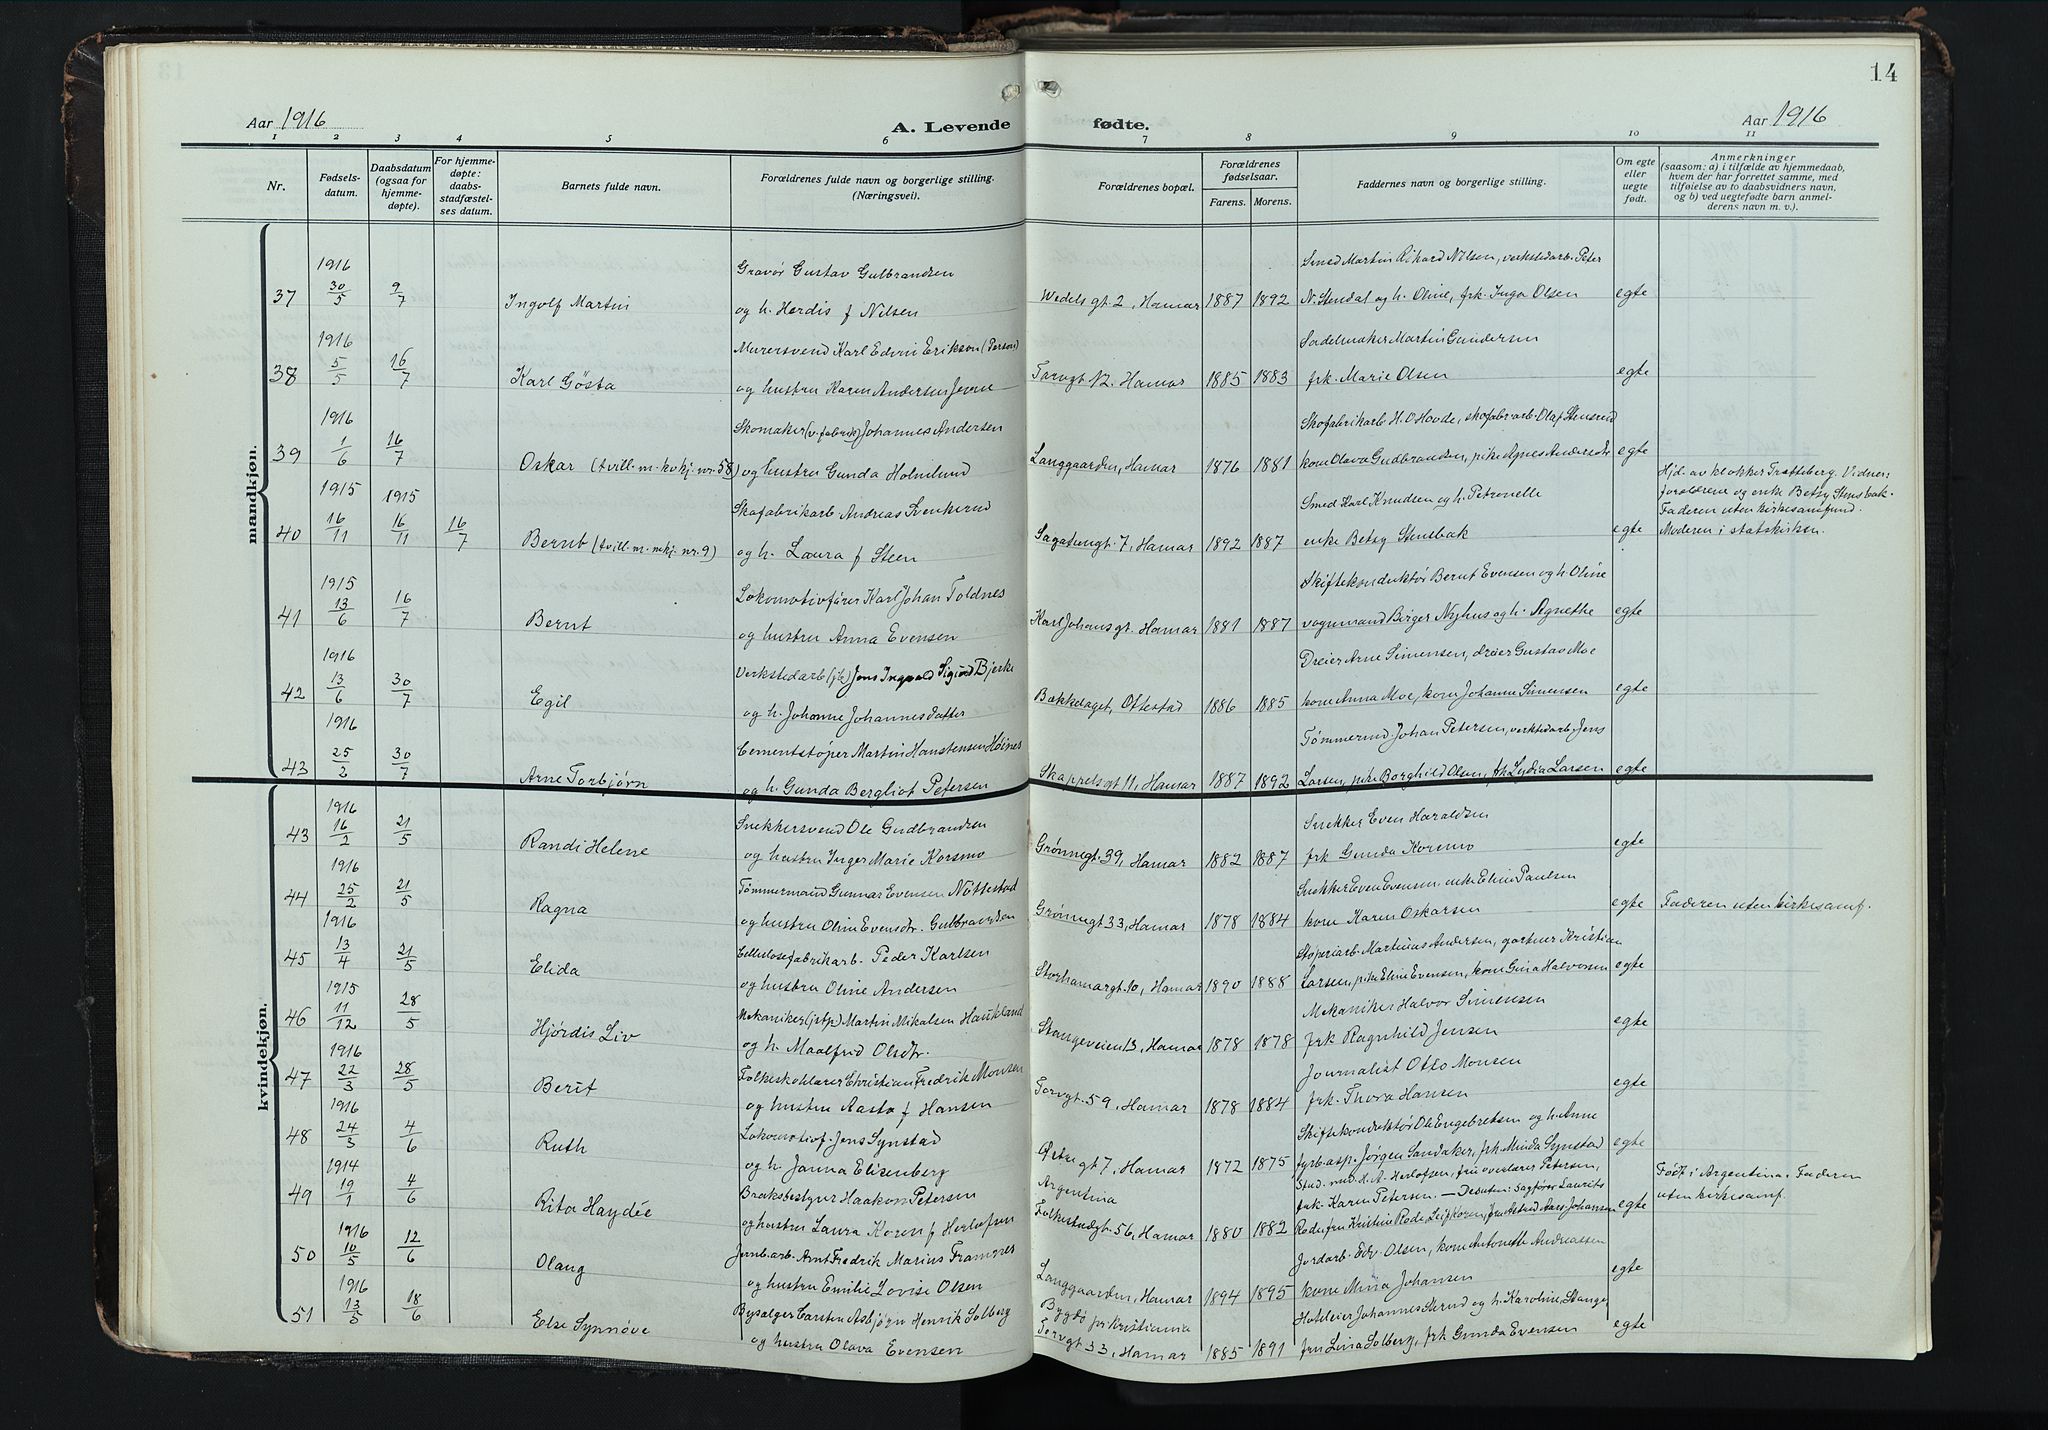 14
Aar 1916
A. Levende fødte.
Aar 1916
1 2 3 4 5 6 7 8 9 10 11
Nr.
Fødsels-
datum.
Daabsdatum
(ogsaa for
hjemme-
døpte).
For hjemme-
døpte:
daabs-
stadfæstel-
ses datum.
Barnets fulde navn.
Forældrenes fulde navn og borgerlige stilling.
(Næringsvei).
Forældrenes bopæl.
Forældrenes
fødselsaar.
Farens. Morens.
Faddernes navn og borgerlige stilling.
Om egte
eller
uegte
født.
Anmerkninger
(saasom: a) i tilfælde av hjemmedaab,
hvem der har forrettet samme, med
tilføielse av to daabsvidners navn,
og b) ved uegtefødte barn anmel-
derens navn m. v.).
mandkjøn.
1916 Gravør Gustav Gulbrandsen Smed Martin Rihard Nilsen, verkstedarb. Peter
37 30/5 9/7 Ingolf Martin og h. Herdis f Nilsen Wedels gt. 2, Hamar 1887 1892 N. Stendal og h. Oline, frk. Inga Olsen egte
1916 Murersvend Karl Edvin Erikson (Person) Sadelmaker Martin Gundersen
38 5/5 16/7 Karl Gösta og hustru Karen Andersen Jevne Torvgt 12. Hamar 1885 1883 frk. Marie Olsen egte
1916 Skomaker (v. fabrik) Johannes Andersen Skofabrikarb H. O Hovde, skofabr.arb. Olaf Stensrud
39 1/6 16/7 Oskar (tvill. m. kvkj. nr. 58) og hustru Gunda Holmlund Langgaarden, Hamar 1876 1881 kone Olava Gudbrandsen, pike Agnes Andersdtr egte
1915 1915 Skofabrikarb Andreas Svenkerud Smed Karl Knudsen og h. Petronelle
40 16/11 16/11 16/7 Bernt (tvill. m. mkj. nr. 9) og h. Laura f Steen Sagatungt. 7, Hamar 1892 1887 enke Betsy Stensbak egte
Hjd. av klokker Trætteberg. Vidner:
forældrene og enke Betsy Stensbak.
Faderen uten kirkesamfund.
Moderen i statskirken.
1915 Lokomotivfører Karl Johan Toldnes Skiftekonduktør Bernt Evensen og h. Oline
41 13/6 16/7 Bernt og hustru Anna Evensen Karl Johansgt. Hamar 1881 1887 vognmand Birger Nyhus og h. Agnethe egte
1916 Verkstedarb (jb) Jens Ingvald Sigurd Bjerke Dreier Arne Simensen, dreier Gustav Moe
42 13/6 30/7 Egil og h. Johanne Johannesdatter Bækkelaget, Ottestad 1886 1885 kone Anna Moe, kone Johanne Simensen egte
1916 Cementstøper Martin Hanstensen Høines Tømmermd. Johan Petersen, verkstedarb. Jens
43 25/2 30/7 Arne Torbjørn og h. Gunda Bergliot Petersen Skappelsgt 11, Hamar 1887 1892 Larsen, pike Borghild Olsen, frk Lydia Larsen egte
kvindekjøn.
1916 Snekkersvend Ole Gudbrandsen Snekker Even Haraldsen
43 16/2 21/5 Randi Helene og hustru Inger Marie Korsmo Grønnegt. 39, Hamar 1882 1887 frk Gunda Korsmo egte
1916 Tømmermand Gunnar Evensen Nøttestad Snekker Even Evensen. enke Eline Paulsen
44 25/2 21/5 Ragna og hustru Oline Evensdtr. Gulbrandsen Grønnegt 33, Hamar 1878 1884 kone Karen Oskarsen egte Faderen uten kirkesamf.
1916 Cellulosefabrikarb. Peder Karlsen Støperiarb. Martinius Andersen, gartner Kristian
45 13/4 21/5 Elida og hustru Oline Andersen Storhamargt. 10, Hamar 1890 1888 Larsen, pike Eline Evensen, kone Gina Halvorsen egte
1915 Mekaniker (jstp) Martin Mikalsen Haukland Mekaniker Halvor Simensen
46 11/12 28/5 Hjørdis Liv og h. Maalfrid Olsdtr. Stangeveien 13, Hamar 1878 1878 frk Ragnhild Jensen egte
1916 Folkeskolelærer Christian Fredrik Monsen Journalist Otto Monsen
47 22/3 28/5 Berit og hustru Aasta f Hansen Torvgt. 59, Hamar 1878 1884 frk. Thora Hansen egte
1916 Lokomotivf. Jens Synstad Skiftekonduktør Ole Engebretsen og h. Anne
48 24/3 4/6 Ruth og h. Janna Elisenberg Østregt 7, Hamar 1872 1875 fyrb.asp. Jørgen Sandaker, frk Minda Synstad egte
1914 Bruksbestyrer Haakon Petersen Argentina Stud. med. H. A. Herlofsen, fru overlærer Petersen,
49 19/1 4/6 Rita Haydée og hustru Laura Koren f Herlofsen Folkestadgt. 56, Hamar 1880 1882 frk. Karen Petersen. — Desuten: sagfører Laurits
Rode, fru Kristine Rode, Leif Koren, fru Astrid Aars-Johansen egte
Født i Argentina. Faderen
uten kirkesamf.
1916 Jernb.arb. Arnt Fredrik Marius Framnes Jordarb. Edv. Olsen, kone Antonette Andreassen
50 10/5 12/6 Olaug og hustru Emilie Lovise Olsen Langgaarden, Hamar 1894 1895 kone Mina Johansen egte
1916 Bysælger Carsten Asbjørn Henrik Solberg Bygdø pr Kristiania Hoteleier Johannes Skrud og h. Karoline, Stange,
51 13/5 18/6 Else Synnøve og hustru Olava Evensen Torvgt 33, Hamar 1885 1891 fru Lina Solberg, frk Gunda Evensen egte